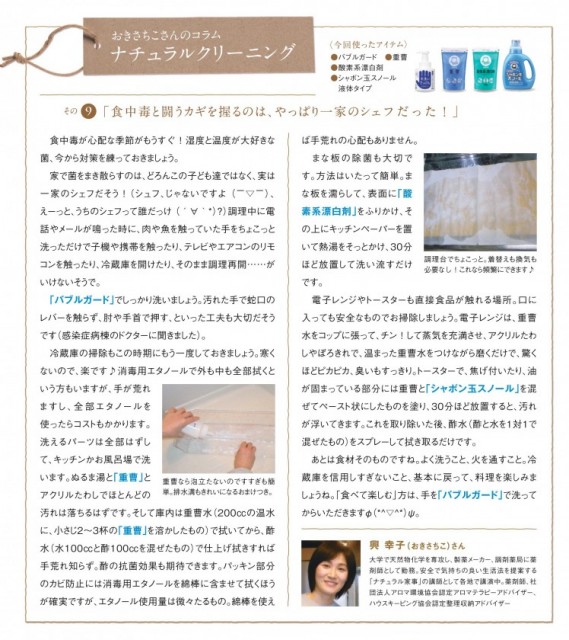 おきさちこさんのコラム
ナチュラルクリーニング
〈今回使ったアイテム〉
●バブルガード ●重曹
●酸素系漂白剤
●シャボン玉スノール
液体タイプ
その9「食中毒と闘うカギを握るのは、やっぱり一家のシェフだった！」
食中毒が心配な季節がもうすぐ！湿度と温度が大好きな
菌、今から対策を練っておきましょう。
家で菌をまき散らすのは、どろんこの子ども達ではなく、実は
一家のシェフだそう！（シュフ、じゃないですよ（￣▽￣）、
えーっと、うちのシェフって誰だっけ（´∀｀*)？)調理中に電
話やメールが鳴った時に、肉や魚を触っていた手をちょこっと
洗っただけで子機や携帯を触ったり、テレビやエアコンのリモ
コンを触ったり、冷蔵庫を開けたり、そのまま調理再開……が
いけないそうで。
「バブルガード」でしっかり洗いましょう。汚れた手で蛇口の
レバーを触らず、肘や手首で押す、といった工夫も大切だそう
です（感染症病棟のドクターに聞きました）。
冷蔵庫の掃除もこの時期にもう一度しておきましょう。寒く
ないので、楽です♪消毒用エタノールで外も中も全部拭くと
いう方もいますが、手が荒れ
ますし、全部エタノールを
使ったらコストもかかります。
洗えるパーツは全部はずし
て、キッチンかお風呂場で洗
います。ぬるま湯と「重曹」と
アクリルたわしでほとんどの
汚れは落ちるはずです。そして庫内は重曹水（200ccの温水
に、小さじ2～3杯の「重曹」を溶かしたもの）で拭いてから、酢
水（水100ccと酢100ccを混ぜたもの）で仕上げ拭きすれば
手荒れ知らず。酢の抗菌効果も期待できます。パッキン部分
のカビ防止には消毒用エタノールを綿棒に含ませて拭くほう
が確実ですが、エタノール使用量は微々たるもの。綿棒を使え
重曹なら泡立たないのですすぎも簡
単。排水溝もきれいになるおまけつき。
ば手荒れの心配もありません。
まな板の除菌も大切で
す。方法はいたって簡単。ま
な板を濡らして、表面に「酸
素系漂白剤」をふりかけ、そ
の上にキッチンペーパーを置
いて熱湯をそっとかけ、30分
ほど放置して洗い流すだけ
です。
調理台でちょこっと。着替えも換気も
必要なし！これなら頻繁にできます♪
電子レンジやトースターも直接食品が触れる場所。口に
入っても安全なものでお掃除しましょう。電子レンジは、重曹
水をコップに張って、チン！して蒸気を充満させ、アクリルたわ
しやぼろきれで、温まった重曹水をつけながら磨くだけで、驚く
ほどピカピカ、臭いもすっきり。トースターで、焦げ付いたり、油
が固まっている部分には重曹と「シャボン玉スノール」を混
ぜてペースト状にしたものを塗り、30分ほど放置すると、汚れ
が浮いてきます。これを取り除いた後、酢水（酢と水を1対1で
混ぜたもの）をスプレーして拭き取るだけです。
あとは食材そのものですね。よく洗うこと、火を通すこと。冷
蔵庫を信用しすぎないこと、基本に戻って、料理を楽しみま
しょうね。「食べて楽しむ」方は、手を「バブルガード」で洗って
からいただきますφ(*^▽^*)ψ。
興 幸子（おきさちこ）さん
大学で天然物化学を専攻し、製薬メーカー、調剤薬局に薬
剤師として勤務。安全で気持ちの良い生活法を提案する
「ナチュラル家事」の講師として各地で講演中。薬剤師、社
団法人アロマ環境協会認定アロマテラピーアドバイザー、
ハウスキーピング協会認定整理収納アドバイザー